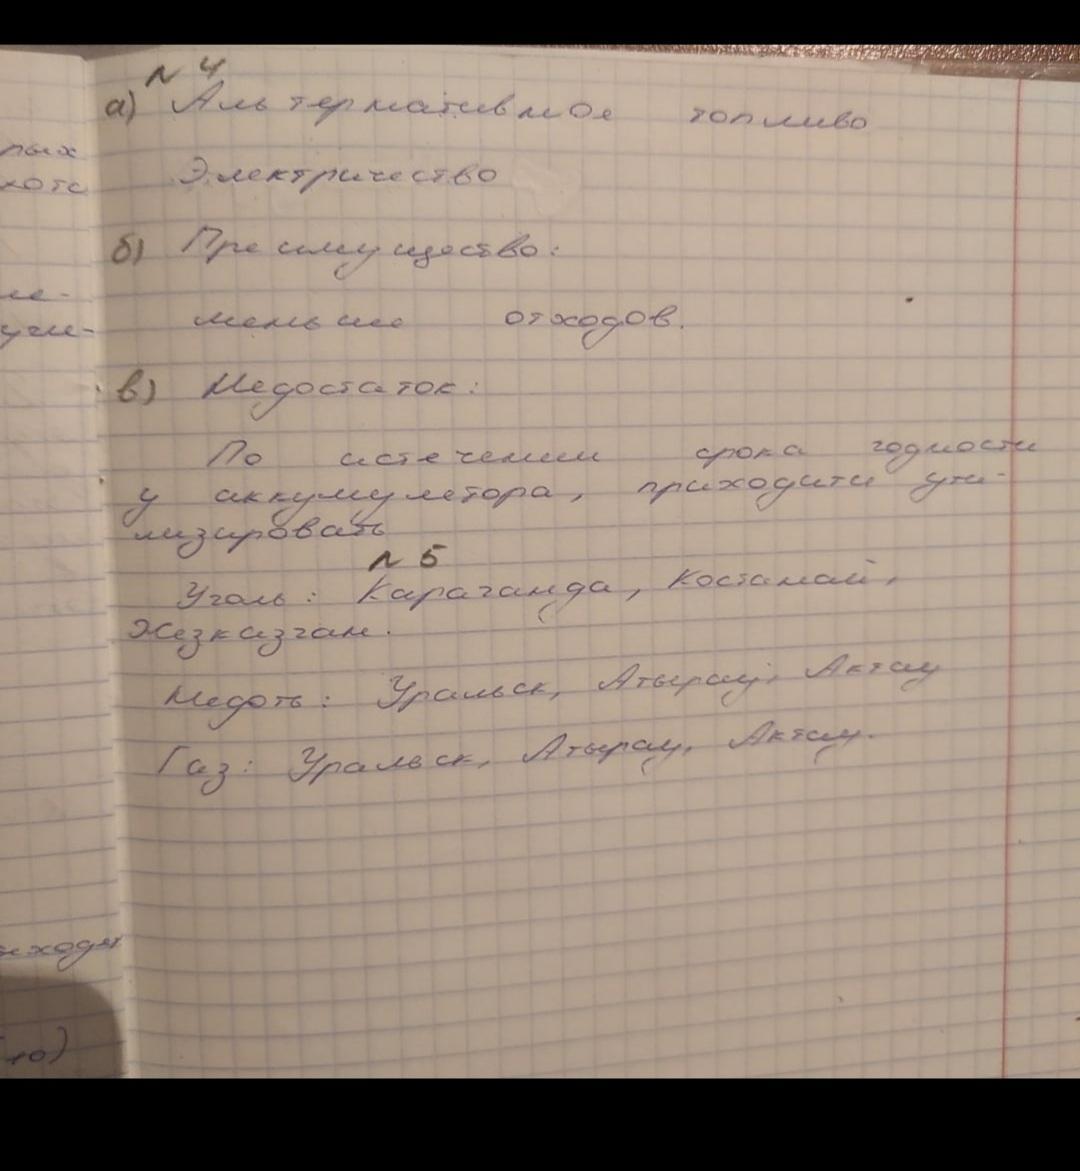 рых
хотс
ле-
учи-
иходят
то)
N 4
а) Альтернативное топливо
Электричество
б) Преимущество:
меньше отходов.
в) Недостаток:
По истечении срока годности
у аккумулетора, приходити ути-
лизировать
N 5
Уголь: Караганда, Костанай,
Жезказган.
Недоть: Уральск, Атырау, Актау
Газ: Уральск, Атырау, Актау.